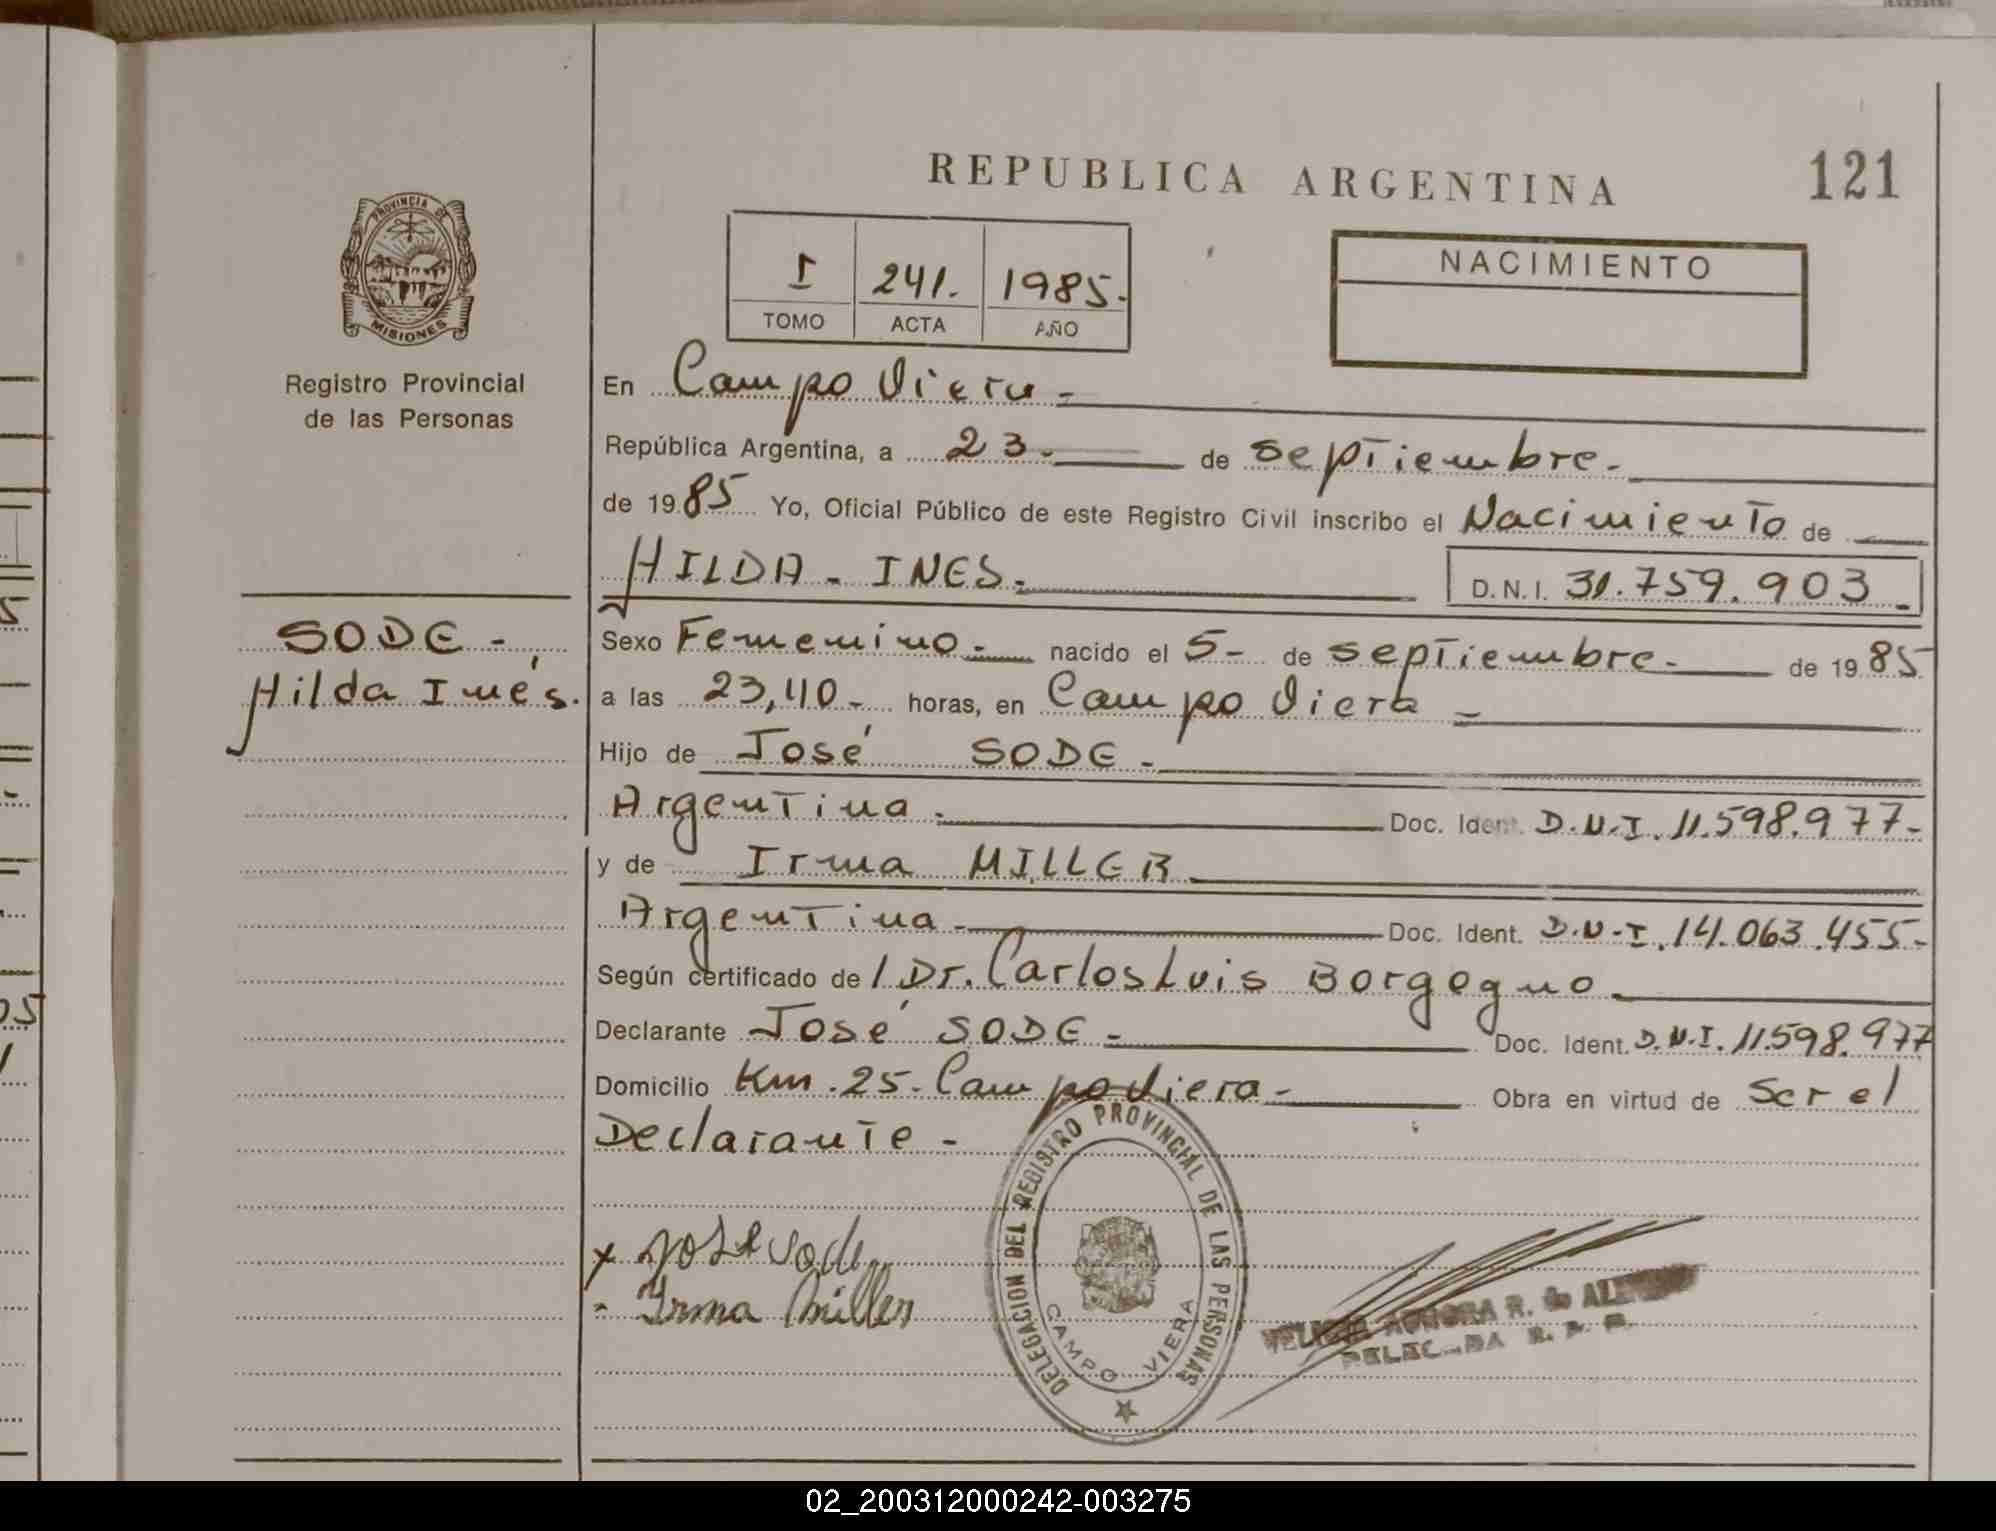 REPUBLICA ARGENTINA
121
PROVINCIA DE
MISIONES
Registro Provincial
de las Personas
I 241. 1985.
TOMO ACTA AÑO
NACIMIENTO
En Campo Viera
República Argentina, a 23 de septiembre.
de 1985 Yo, Oficial Público de este Registro Civil inscribo el Nacimiento de
HILDA - INES.
D.N.I. 31.759.903
SODE -
Hilda Inés.
Sexo Femenino nacido el 5 de septiembre de 1985
a las 23,40 horas, en Campo Viera
Hijo de José SODE
Argentina. Doc. Ident. D.N.I. 11.598.977-
y de Irma MILLER
Argentina Doc. Ident. D.N.I. 14.063.455-
Según certificado de / Dr. Carlos Luis Borgogno
Declarante José SODE Doc. Ident. D.N.I. 11.598.977
Domicilio Km. 25- Campo Viera Obra en virtud de Ser el
Declarante -
x José Sode
- Irma Miller
DELEGACION DEL REGISTRO PROVINCIAL DE LAS PERSONAS
CAMPO VIERA
R. de
02_200312000242-003275